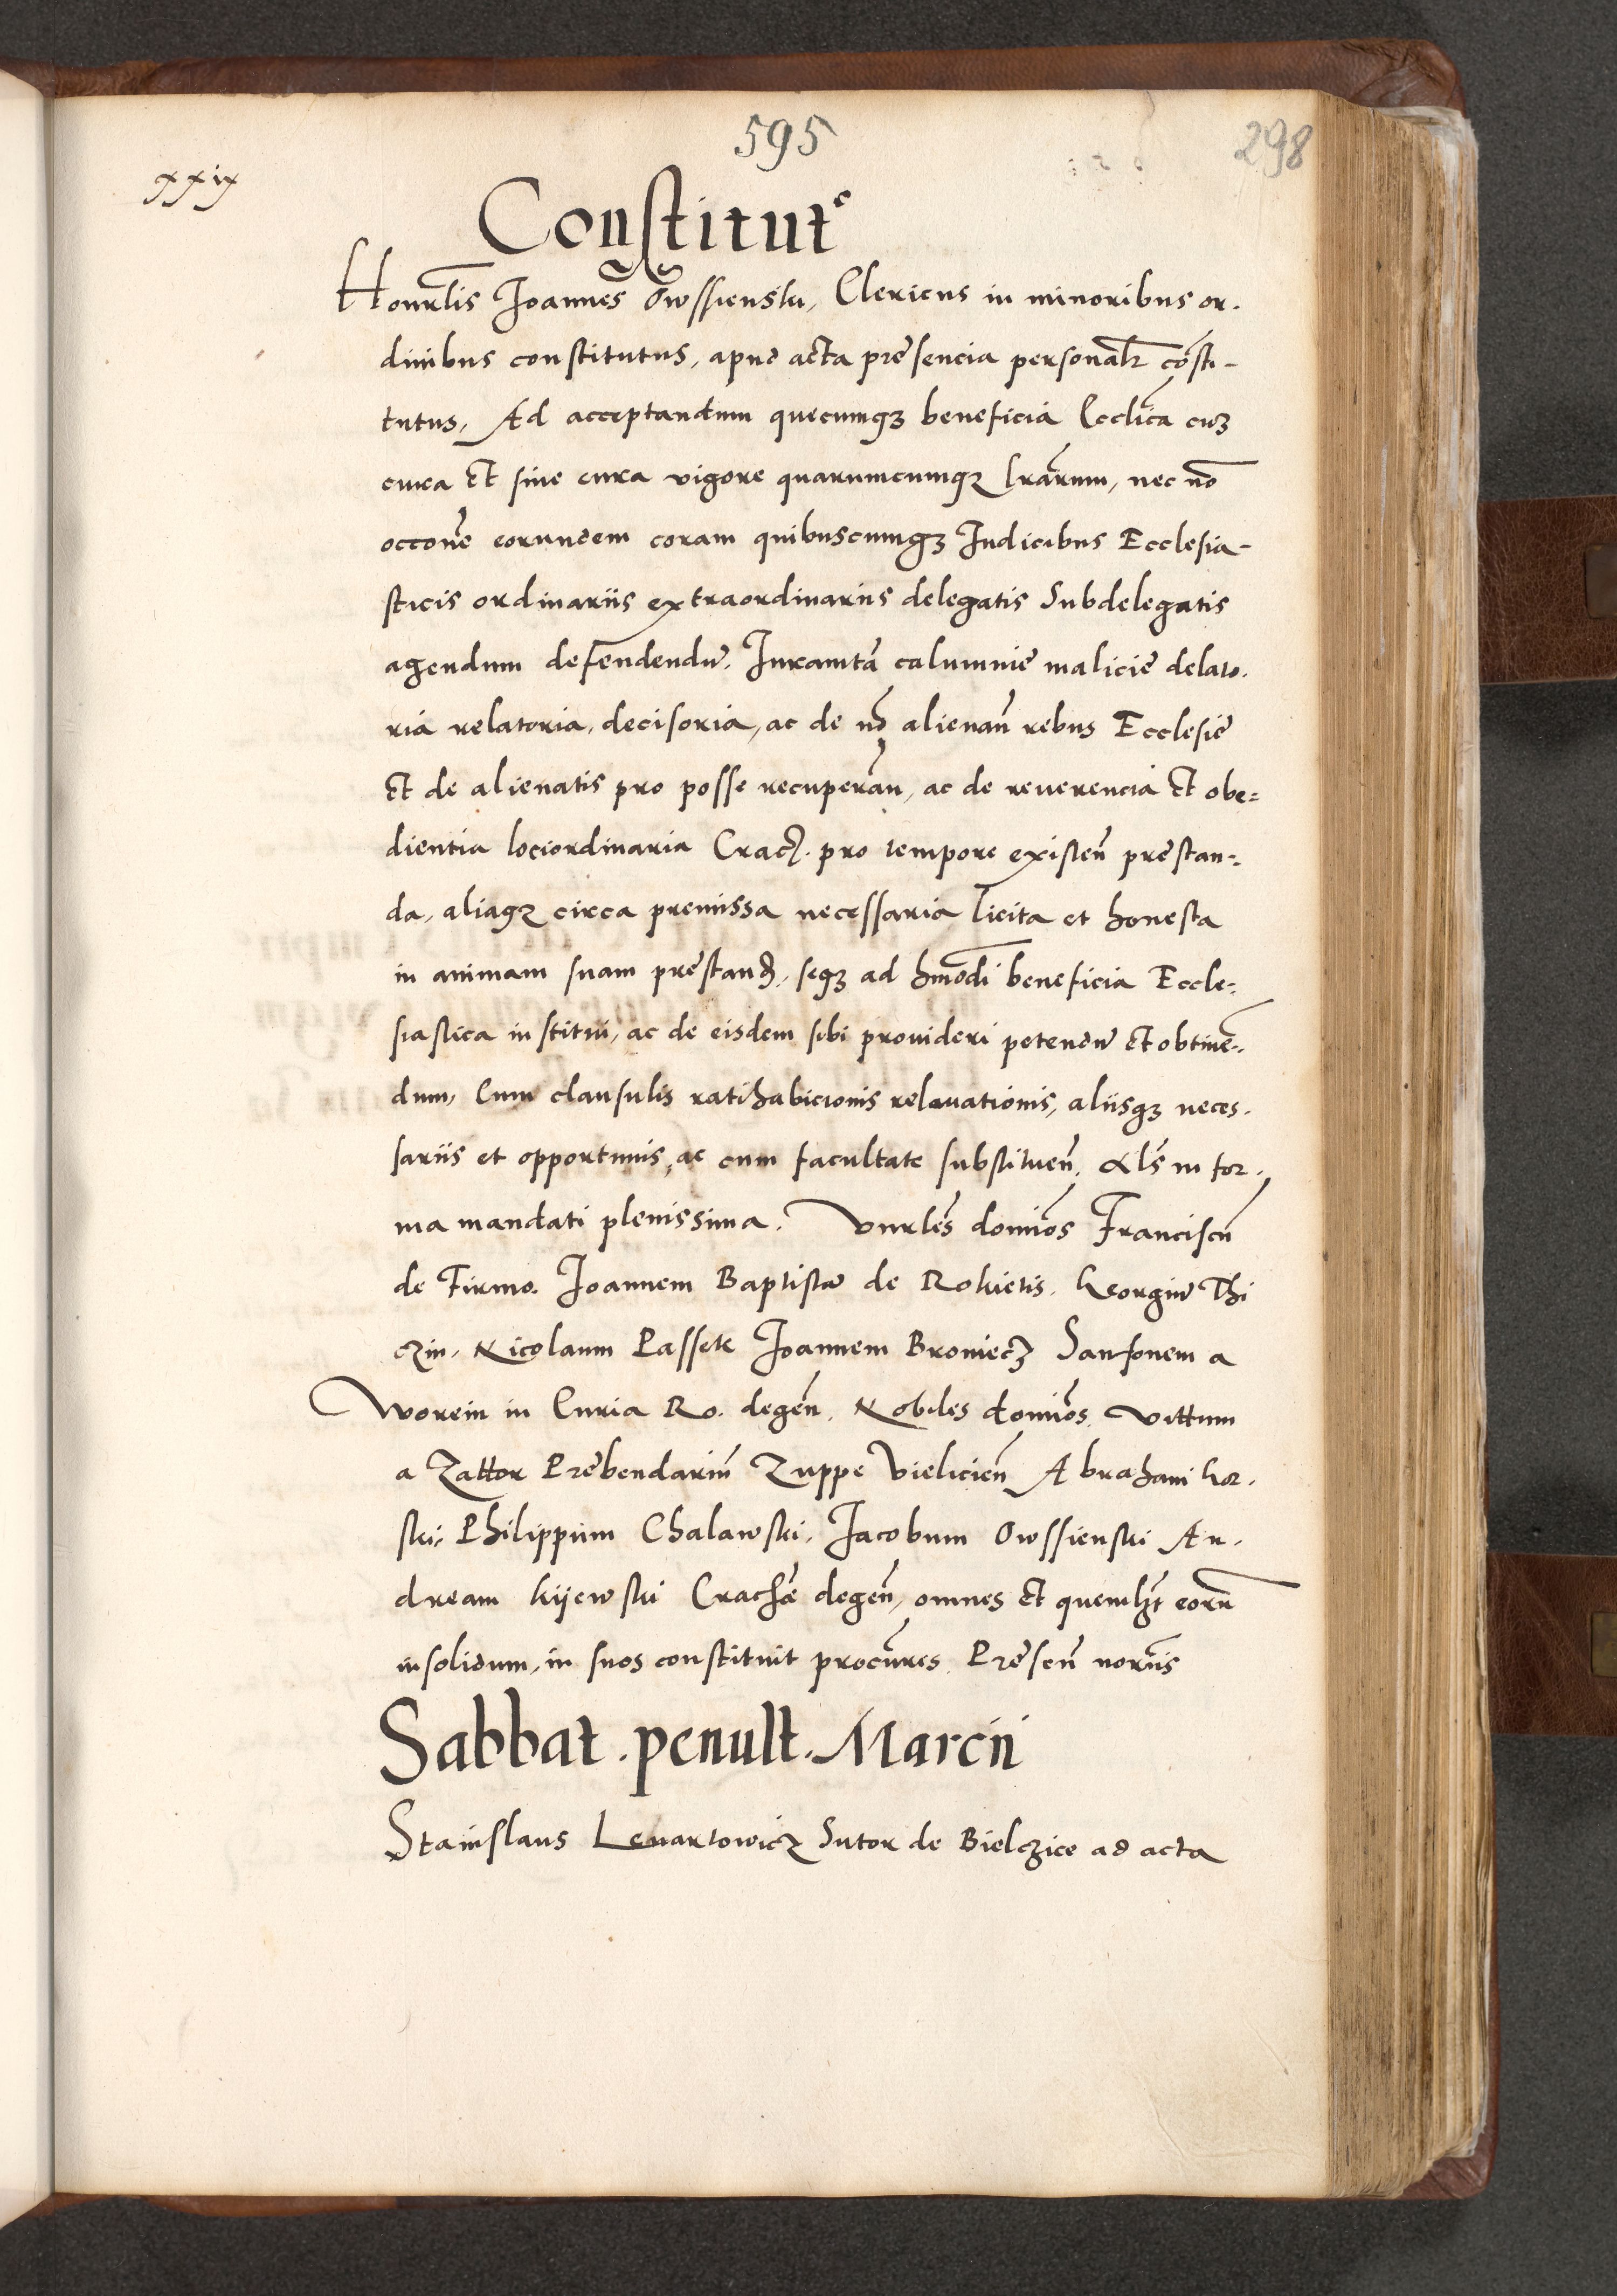 595
298
xxix
Constitutᵉ
Honrlis Joannes Owssienski, Clericus in minoribus or-
dinibus constitutus, apud acta presencia personalr consti-
tutus, Ad acceptandum quecumqz beneficia Ecclica cuz
cura et sine cura vigore quarumcumqz lrarum, nec no
occone eorundem coram quibuscumqz Judicibus Ecclesia-
sticis ordinariis extraordinariis delegatis Subdelegatis
agendum defendendu. Juramta calumnie malicie delato-
ria relatoria, decisoria, ac de no alienan rebus Ecclesie
et de alienatis pro posse recuperan, ac de reuerencia et obe=
dientia lociordinaria Crac. pro tempore existen prestan=
da, aliaqz circa premissa necessaria licita et honesta
in animam suam prestand, seqz ad hmodi beneficia Eccle=
siastica institui, ac de eisdem sibi prouideri petendu et obtinen-
dum, Cum clausulis ratihabicionis releuationis, aliisqz neces-
sariis et opportunis, ac cum facultate substituen, als in for-
ma mandati plenissima. Vnrles domios Franciscu
de Firmo. Joannem Baptista de Rokietis. Georgiu Thi
czin, Nicolaum Passek Joannem Broniecz Sanfonem a
Worein in Curia Ro. degen, Nobiles domios, Vittum
a Zattor Prebendariu Zuppe Vielicien Abrahami Gor-
ski, Philippum Chalawski, Jacobum Owssienski An-
dream Kijewski Crachæ degen, omnes et quemlzt eoru
insolidum, in suos constituit procures. Presen noriis
Sabbat. penult. Marcii
Stanislaus Leuartowicz Sutor de Bielczice ad acta